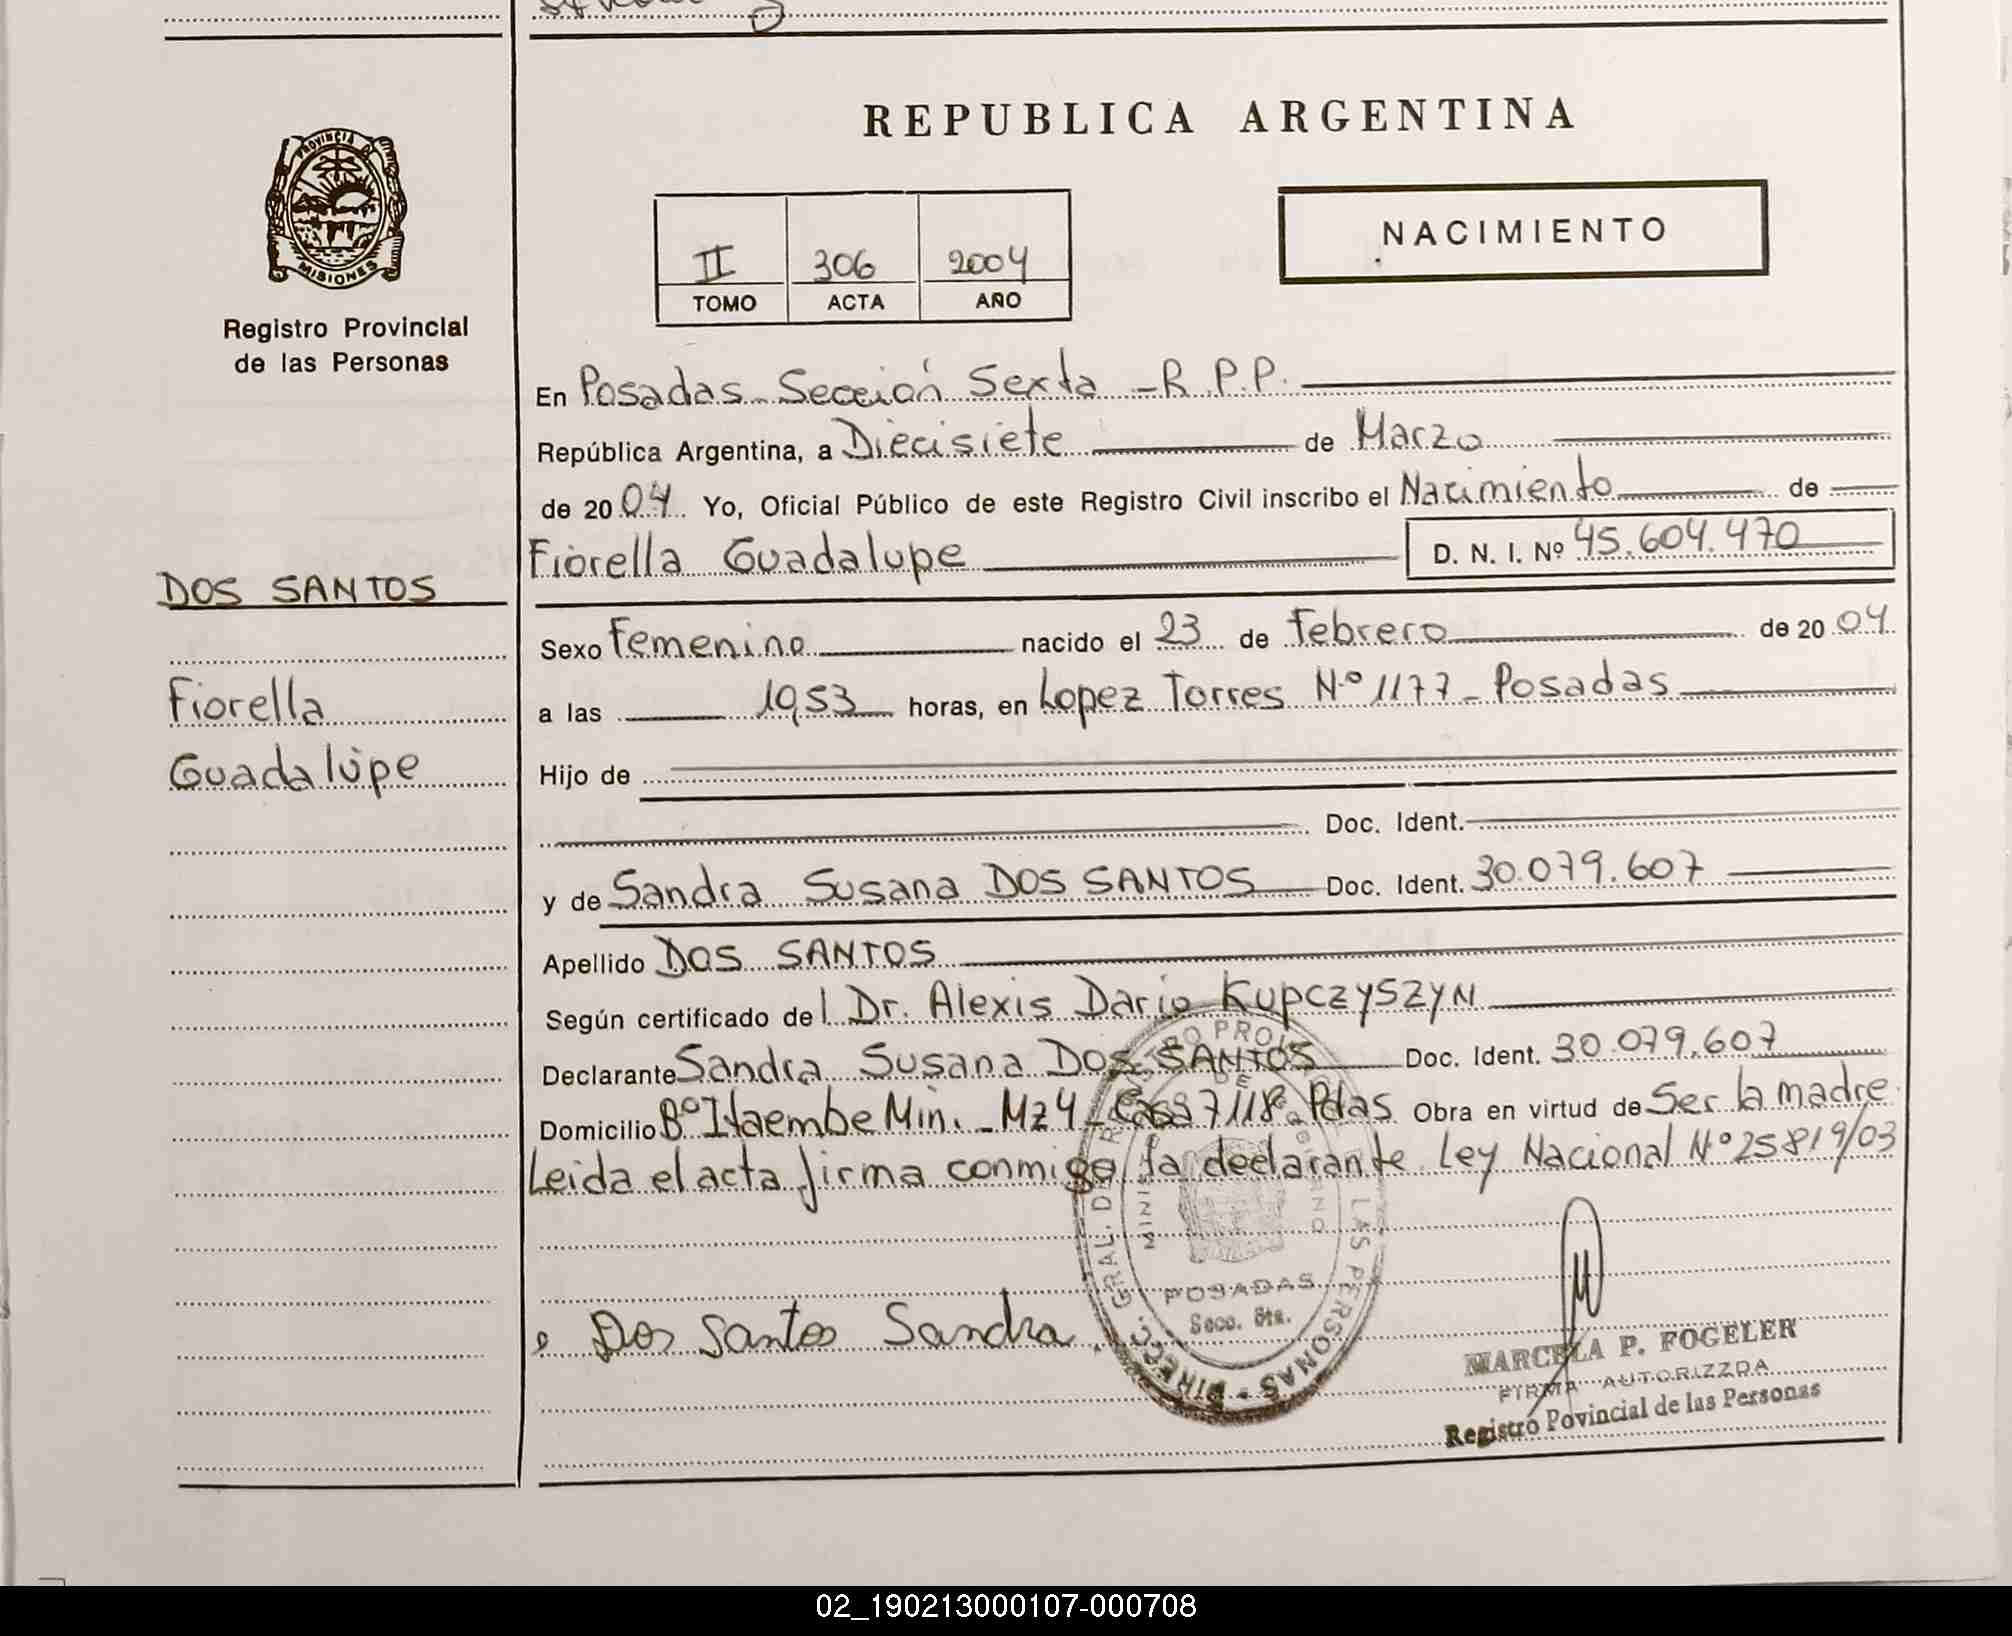 REPUBLICA ARGENTINA
PROVINCIA DE
MISIONES
Registro Provincial
de las Personas
NACIMIENTO
II 306 2004
TOMO ACTA AÑO
En Posadas Sección Sexta - R.P.P.
República Argentina, a Diecisiete de Marzo
de 2004 Yo, Oficial Público de este Registro Civil inscribo el Nacimiento de
Fiorella Guadalupe D. N. I. Nº 45.604.470
DOS SANTOS
Fiorella
Guadalupe
Sexo Femenino nacido el 23 de Febrero de 2004
a las 10,53 horas, en Lopez Torres Nº 1177 - Posadas
Hijo de
Doc. Ident.
y de Sandra Susana DOS SANTOS Doc. Ident. 30.079.607
Apellido DOS SANTOS
Según certificado del Dr. Alexis Dario KUPCZYSZYN
Declarante Sandra Susana DOS SANTOS Doc. Ident. 30.079.607
Domicilio Bº Itaembe Mini. - Mz 4 - Casa 7118 Pdas Obra en virtud de Ser la madre
Leida el acta firma conmigo la declarante Ley Nacional Nº 25819/03
Dos Santos Sandra
POSADAS
Secc. 6ta.
MARCELA P. FOGELER
FIRMA AUTORIZZDA
Registro Povincial de las Personas
02_190213000107-000708